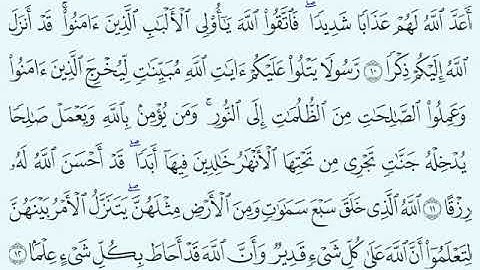 أَعَدَّ ٱللَّهُ لَهُمْ عَذَابًا شَدِيدًا ۖ فَٱتَّقُوا۟ ٱللَّهَ يَـٰٓأُو۟لِى ٱلْأَلْبَـٰبِ ٱلَّذِينَ ءَامَنُوا۟ ۚ قَدْ أَنزَلَ
ٱللَّهُ إِلَيْكُمْ ذِكْرًا ١٠ رَّسُولًا يَتْلُوا۟ عَلَيْكُمْ ءَايَـٰتِ ٱللَّهِ مُبَيِّنَـٰتٍ لِّيُخْرِجَ ٱلَّذِينَ ءَامَنُوا۟
وَعَمِلُوا۟ ٱلصَّـٰلِحَـٰتِ مِنَ ٱلظُّلُمَـٰتِ إِلَى ٱلنُّورِ ۚ وَمَن يُؤْمِنۢ بِٱللَّهِ وَيَعْمَلْ صَـٰلِحًا
يُدْخِلْهُ جَنَّـٰتٍ تَجْرِى مِن تَحْتِهَا ٱلْأَنْهَـٰرُ خَـٰلِدِينَ فِيهَآ أَبَدًا ۖ قَدْ أَحْسَنَ ٱللَّهُ لَهُۥ
رِزْقًا ١١ ٱللَّهُ ٱلَّذِى خَلَقَ سَبْعَ سَمَـٰوَٰتٍ وَمِنَ ٱلْأَرْضِ مِثْلَهُنَّ ۖ يَتَنَزَّلُ ٱلْأَمْرُ بَيْنَهُنَّ
لِتَعْلَمُوٓا۟ أَنَّ ٱللَّهَ عَلَىٰ كُلِّ شَىْءٍ قَدِيرٌ وَأَنَّ ٱللَّهَ قَدْ أَحَاطَ بِكُلِّ شَىْءٍ عِلْمًۢا ١٢